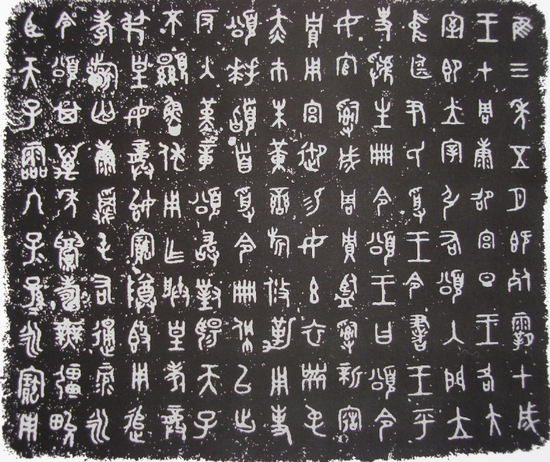 隹三年五月既死霸甲戌
王才周康卲宮旦王各大
室即立宰引右頌入門立
中廷尹氏受王令書王乎
史虢生冊令頌王曰頌令
女官𤔲成周貯監𤔲新寤
貯用宮御易女玄衣黹屯
赤巿朱黃䜌旂攸勒用事
頌拜䭫首受令冊佩以出
反入堇章頌敢對揚天子
不顯魯休用乍朕皇考龏
叔皇母龏姒寶尊𣪘用追
孝旂匄康𩁹屯右通彔永
令頌其萬年眉壽無疆畯
臣天子霝冬子孫永寶用